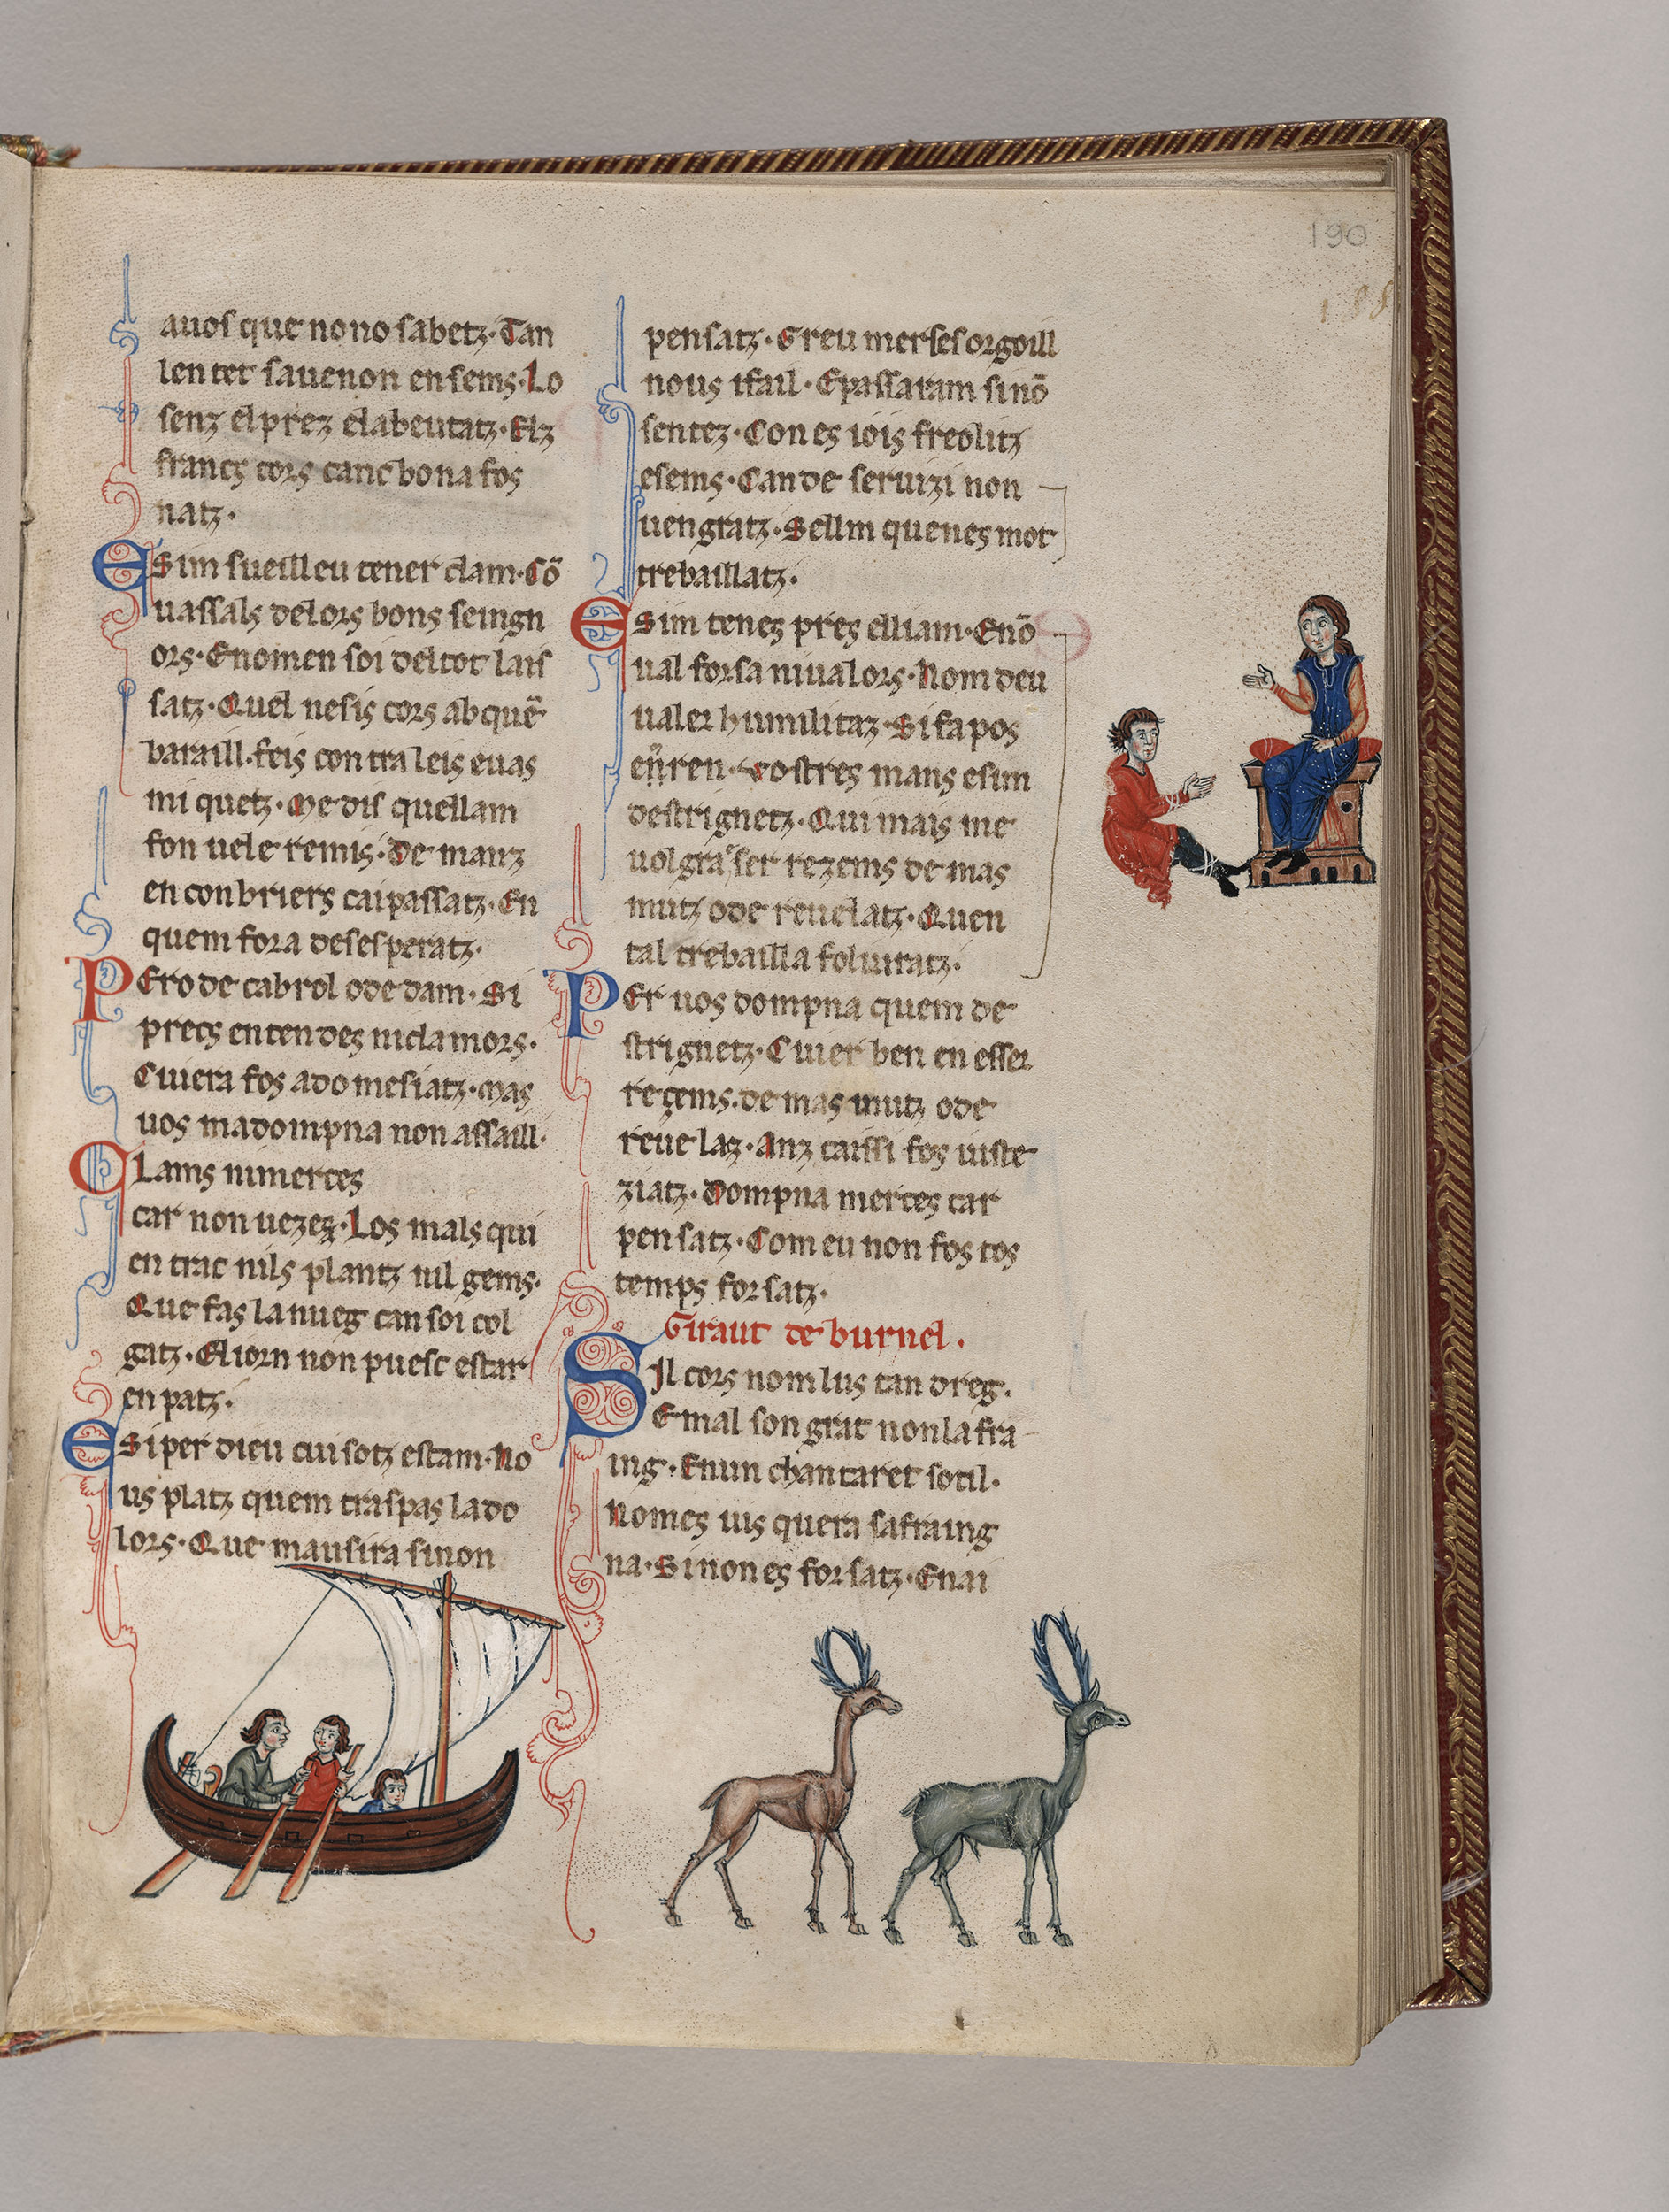 190
188
auos que no no sabetz · Tan
len ter sauenon ensems · Lo
senz el prez elabeutatz · Elz
francs cors canc bona fos
natz ·
ESim sueill eu tener clam · Cō
uassals delors bons seingn
ors · Enomen soi deltot lais
satz · Quel nesis cors ab quē
baraill · feis contra leis euas
mi quetz · Me dis quellam
fon uele remis · De manz
enconbriers cai passatz · En
quem fora desesperatz ·
PEro de cabrol ode dam · Si
precs entendes niclamors ·
Cuiera fos adomesiatz · Mas
uos ma dompna non assaill ·
CLams nimerces
car non uezez · Los mals qui
en trac nils plantz nil gems ·
Que fas la nueg can soi col
gatz · El iorn non puesc estar
en patz ·
ESi per dieu cui sotz estam · No
us platz quem traspas la do
lors · Que mausira sinon
pensatz · Greu merses orgoill
nous ifail · Epassaram sinō
sentez · Con es iois freolitz
esems · Can de seruizi non
uen gratz · Sellm quenes mot
trebaillatz ·
ESim tenes pres elliam · Enō
ual forsa niualors · Nom deu
ualer humilitaz · Si fa pos
en ren · uostres mans esim
destrignetz · Qui mais me
uolgra esser rezems de mas
mutz ode reuelatz · Quen
tal trebailla foliuratz ·
PEr uos dompna quem de
strignetz · Cuier ben en esser
reçems · de mas mutz ode
reuelaz · Anz caissi fos iuste
ziatz · Dompna merces car
pensatz · Com eu non fos tos
temps forsatz ·
Giraut de burnel .
SIl cors nom lus tan dreg ·
E mal son grat non la fra
ing · Enun chantaret sotil ·
Nomes uis quera safraing
na · Sinon es forsatz · Enai